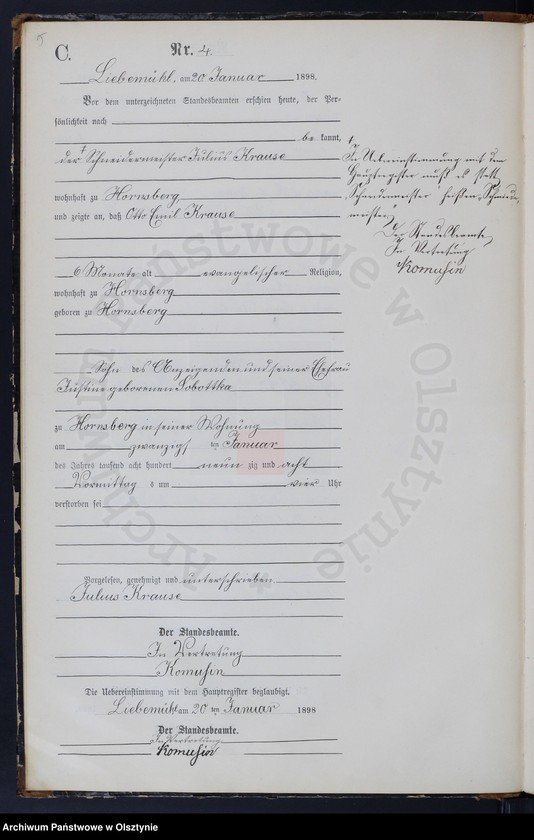 5
C.
Nr. 4.
Liebemühl, am 20 Januar 1898.
Vor dem unterzeichneten Standesbeamten erschien heute, der Per-
sönlichkeit nach
be kannt,
der Schneidermeister Julius Krause
wohnhaft zu Hornsberg
und zeigte an, daß Otto Emil Krause
6 Monate alt evangelischer Religion,
wohnhaft zu Hornsberg
geboren zu Hornsberg
Sohn des Anzeigenden und seiner Ehefrau
Justine geborenen Sobottka
zu Hornsberg in seiner Wohnung
am zwanzigsten Januar
des Jahres tausend acht hundert neun zig und acht
Vormittag s um vier Uhr
verstorben sei
Vorgelesen, genehmigt und unterschrieben
Julius Krause
Der Standesbeamte.
In Vertretung
Komusin
Die Uebereinstimmung mit dem Hauptregister beglaubigt.
Liebemühl am 20 ten Januar 1898
Der Standesbeamte.
In Vertretung
Komusin
In Uebereinstimmung mit dem
Hauptregister muß es statt
"Schneidermeister" heißen "Schmiede-
meister"
Der Standesbeamte
In Vertretung
Komusin
Archiwum Państwowe w Olsztynie
Archiwum Państwowe w Olsztynie